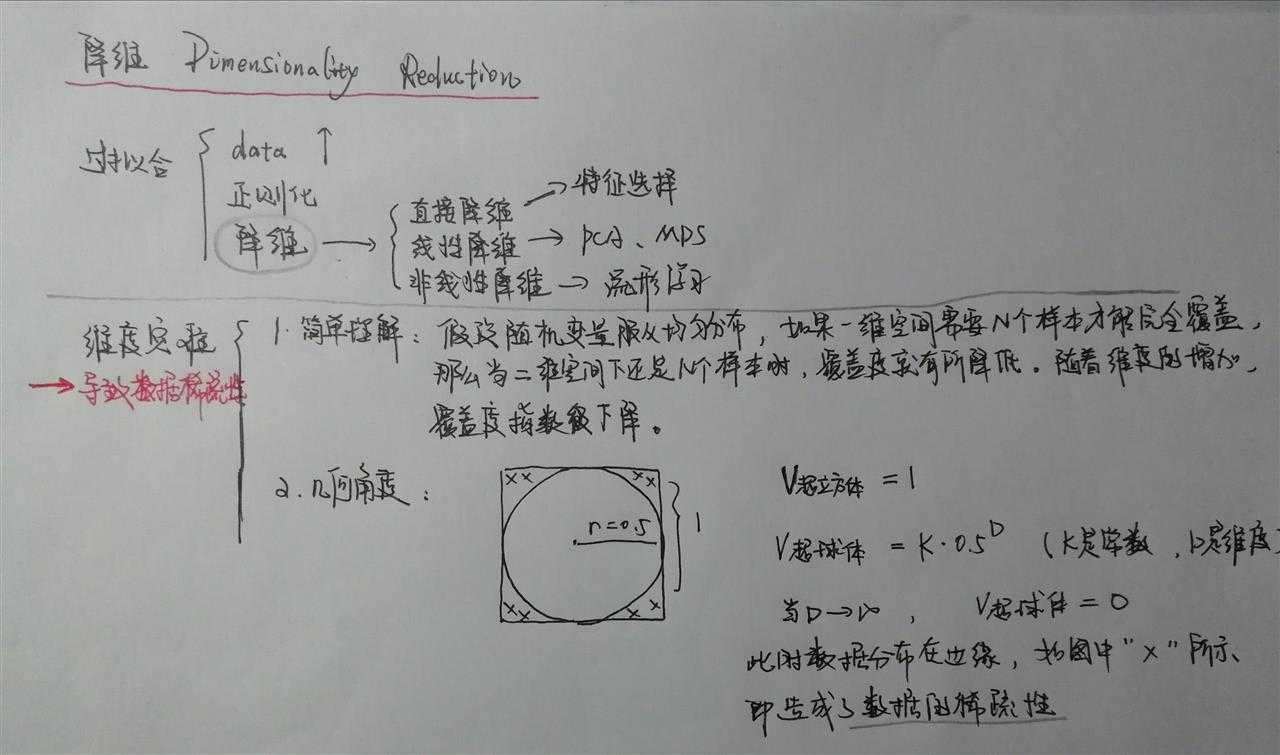 降维 Dimensionality Reduction
过拟合
data ↑
正则化
降维 → 直接降维 → 特征选择
线性降维 → PCA、MDS
非线性降维 → 流形学习
维度灾难
→ 导致数据稀疏性
1. 简单理解: 假设随机变量服从均匀分布, 如果一维空间需要N个样本才能完全覆盖,
那么当二维空间下还是N个样本时, 覆盖度就有所降低。随着维度的增加,
覆盖度指数级下降。
2. 几何角度:
r=0.5
1
V超立方体 = 1
V超球体 = K·0.5^D (K是常数, D是维度)
当D→∞, V超球体 = 0
此时数据分布在边缘, 如图中"×"所示、
即造成了数据的稀疏性